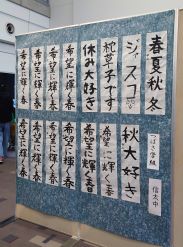 春夏秋冬
ジャスコ
枕草子です
休み大好き
希望に輝く春
希望に輝く春
希望に輝く春
つばさ学級
信太中
秋大好き
希望に輝く春
希望に輝く春
希望に輝く春
希望に輝く春
希望に輝く春